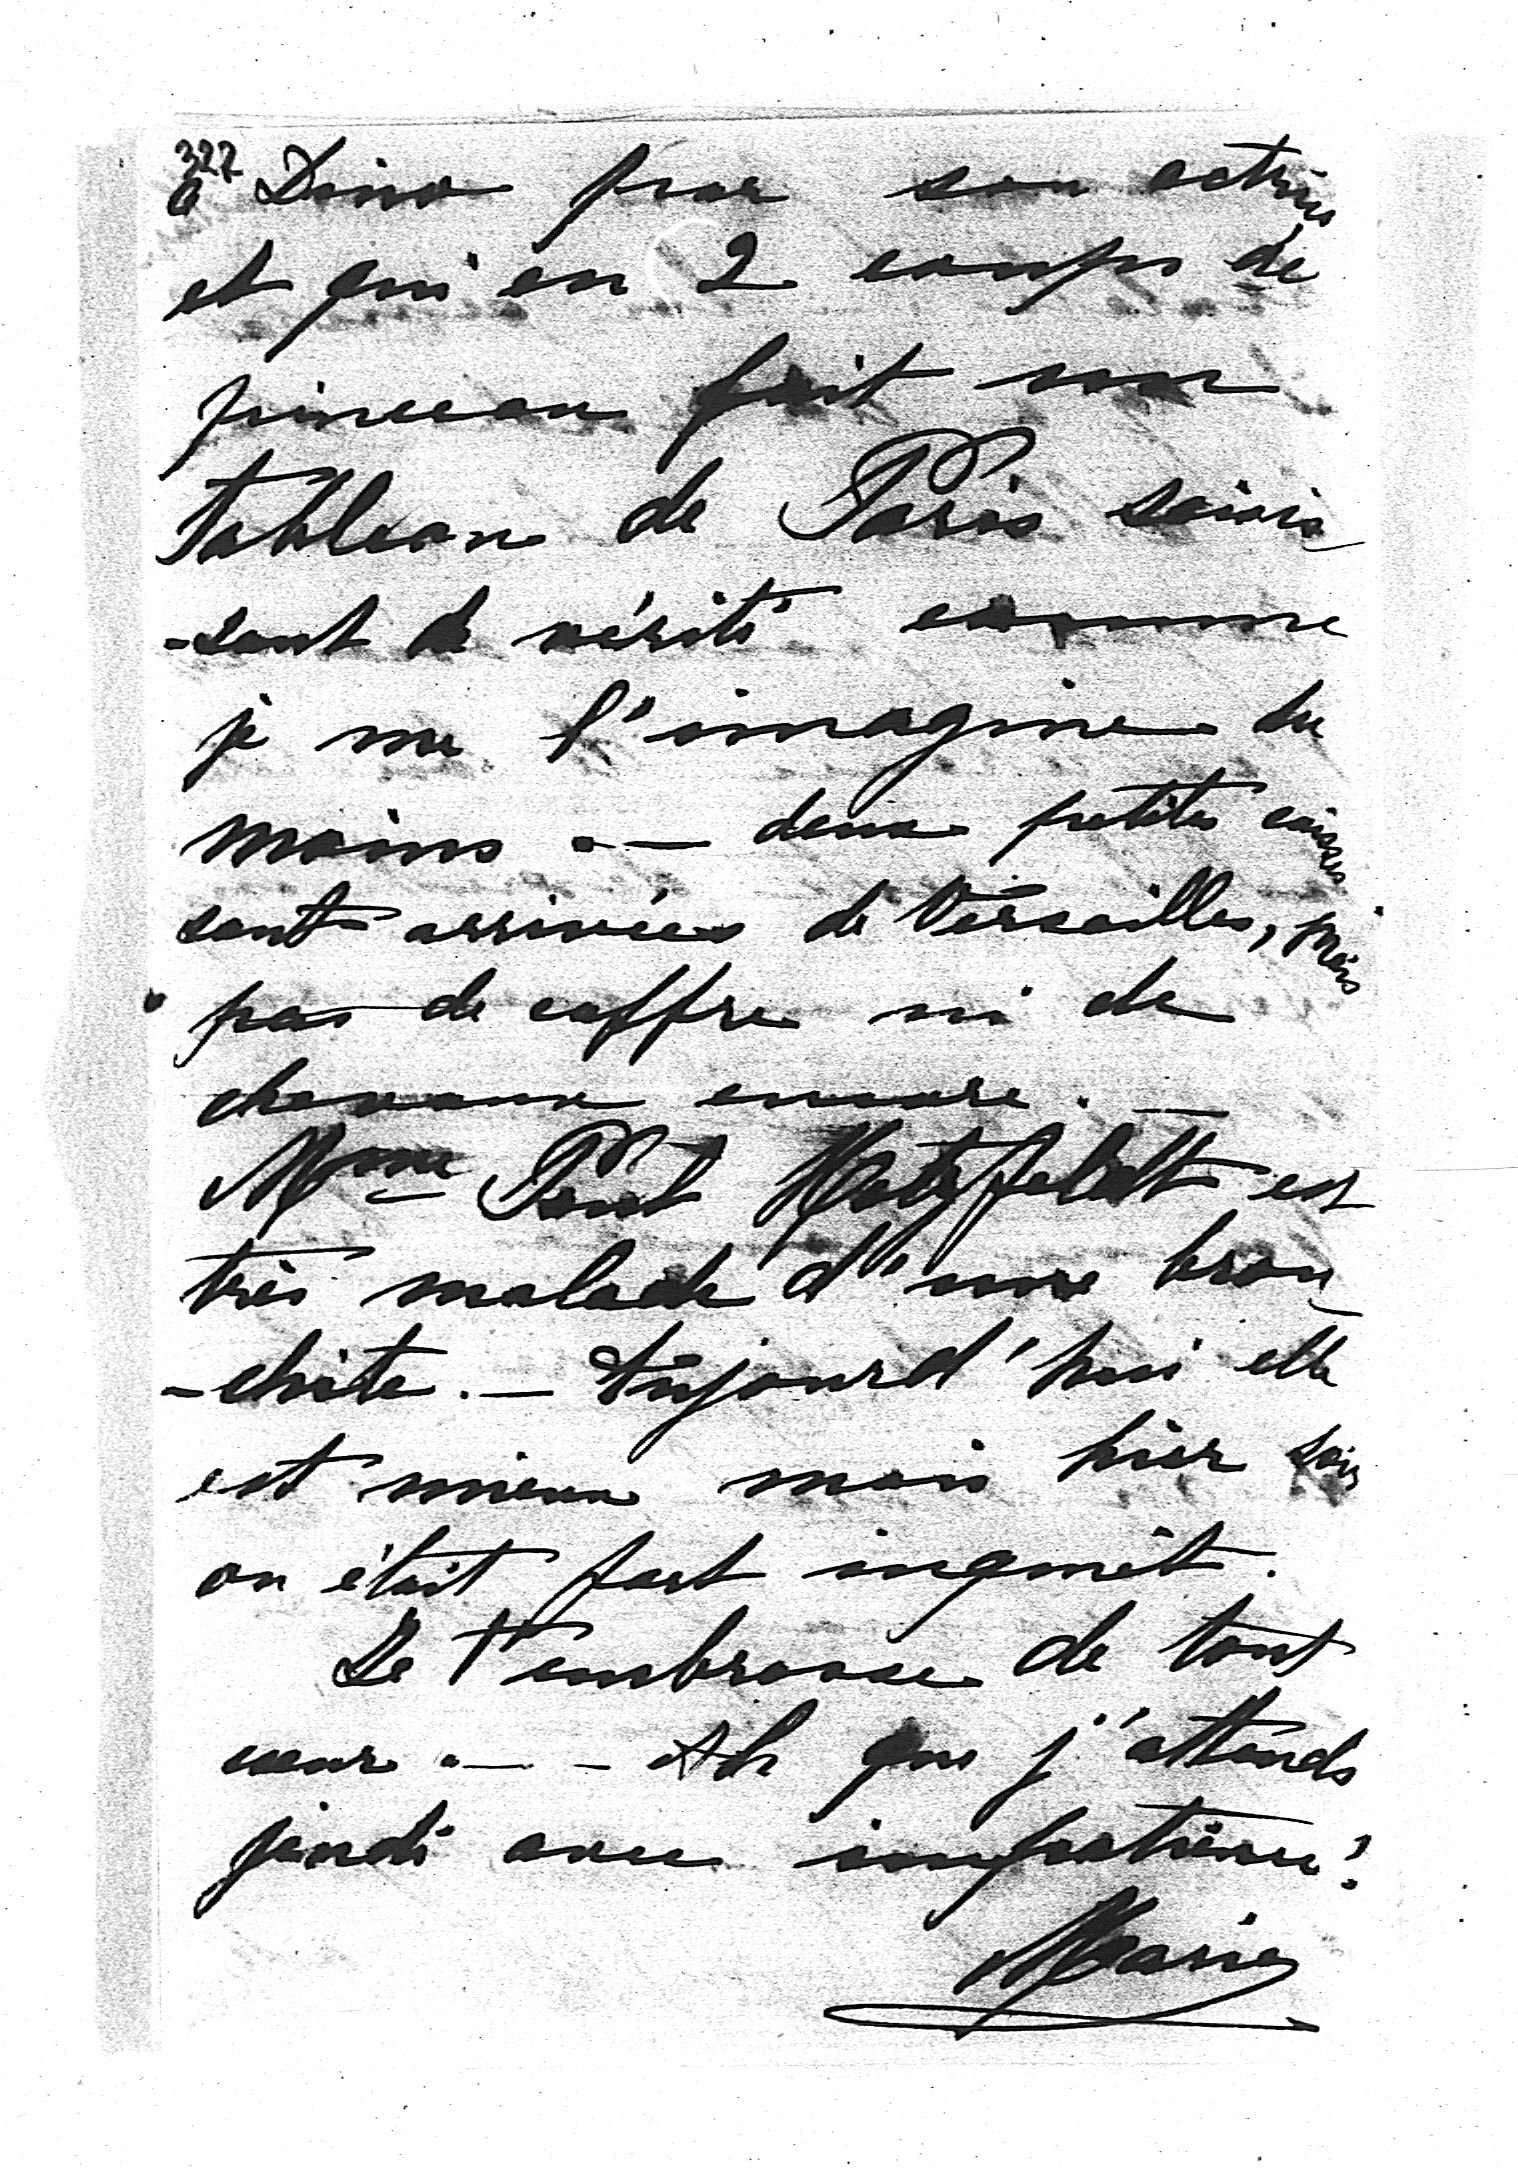 322
à Dino par son actrice
et qui en 2 coups de
pinceau fait un
tableau de Paris saisis
-sant de vérité comme
je me l'imagine du
moins . — deux petites caisses
sont arrivées de Versailles, mais
pas de coffre ni de
chevaux encore. —
Mme Paul Hatzfeldt est
très malade d'une bron
-chite. — Aujourd'hui elle
est mieux mais hier soir
on était fort inquiet.
Je t'embrasse de tout
cœur . — - Ah que j'attends
jeudi avec impatience!
Marie